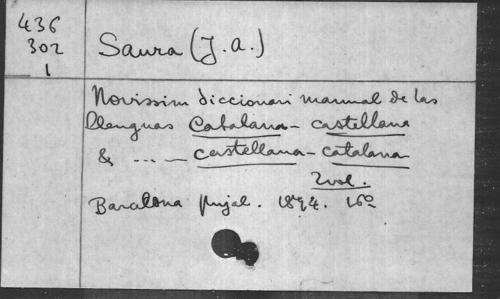 436
302
1
Saura (J. a.)
Novissim diccionari manual de las
llenguas Catalana - castellana
& ... — castellana - catalana
2 vol.
Barcelona Pujal. 1894. 16º